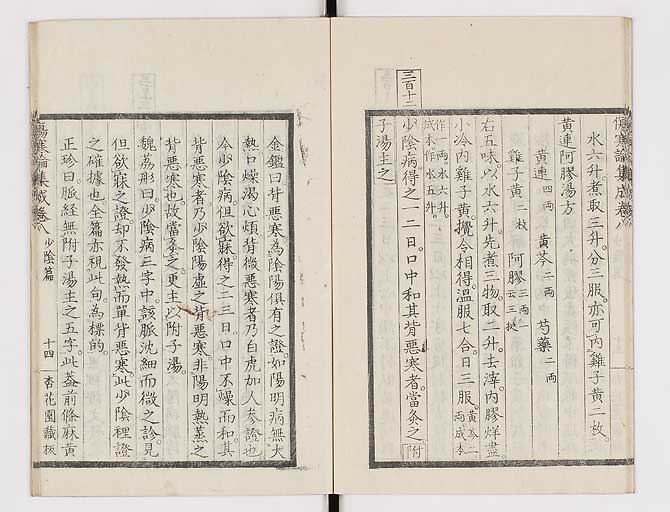 傷寒論集成卷八
水六升。煮取三升。分三服。亦可內雞子黃二枚。
黃連阿膠湯方
黃連四兩 黃芩二兩 芍藥二兩
雞子黃二枚 阿膠三兩一云三挺
右五味以水六升。先煮三物。取二升。去滓。內膠烊盡。
小冷內雞子黃。攪令相得。溫服七合。日三服。黃芩二兩成本
作一兩。水六升。成本作水五升。
三百十二 少陰病。得之一二日。口中和。其背惡寒者。當灸之。附
子湯主之
金鑑曰。背惡寒。為陰陽俱有之證。如陽明病。無大
熱。口燥渴。心煩。背微惡寒者。乃白虎加人參證也。
今少陰病。但欲寐。得之二三日。口中不燥。而和其
背惡寒者。乃少陰陽虛之背惡寒。非陽明熱蒸之
背惡寒也。故當灸之。更主以附子湯。
魏荔彤曰。少陰病三字中。該脈沈細而微之診。見
但欲寐之證。却不發熱。而單背惡寒。此少陰裡證
之確據也。全篇亦視此句。為標的。
正珍曰。脈經無附子湯主之五字。此蓋前條麻黃
傷寒論集成卷八 少陰篇 十四 杏花園藏板